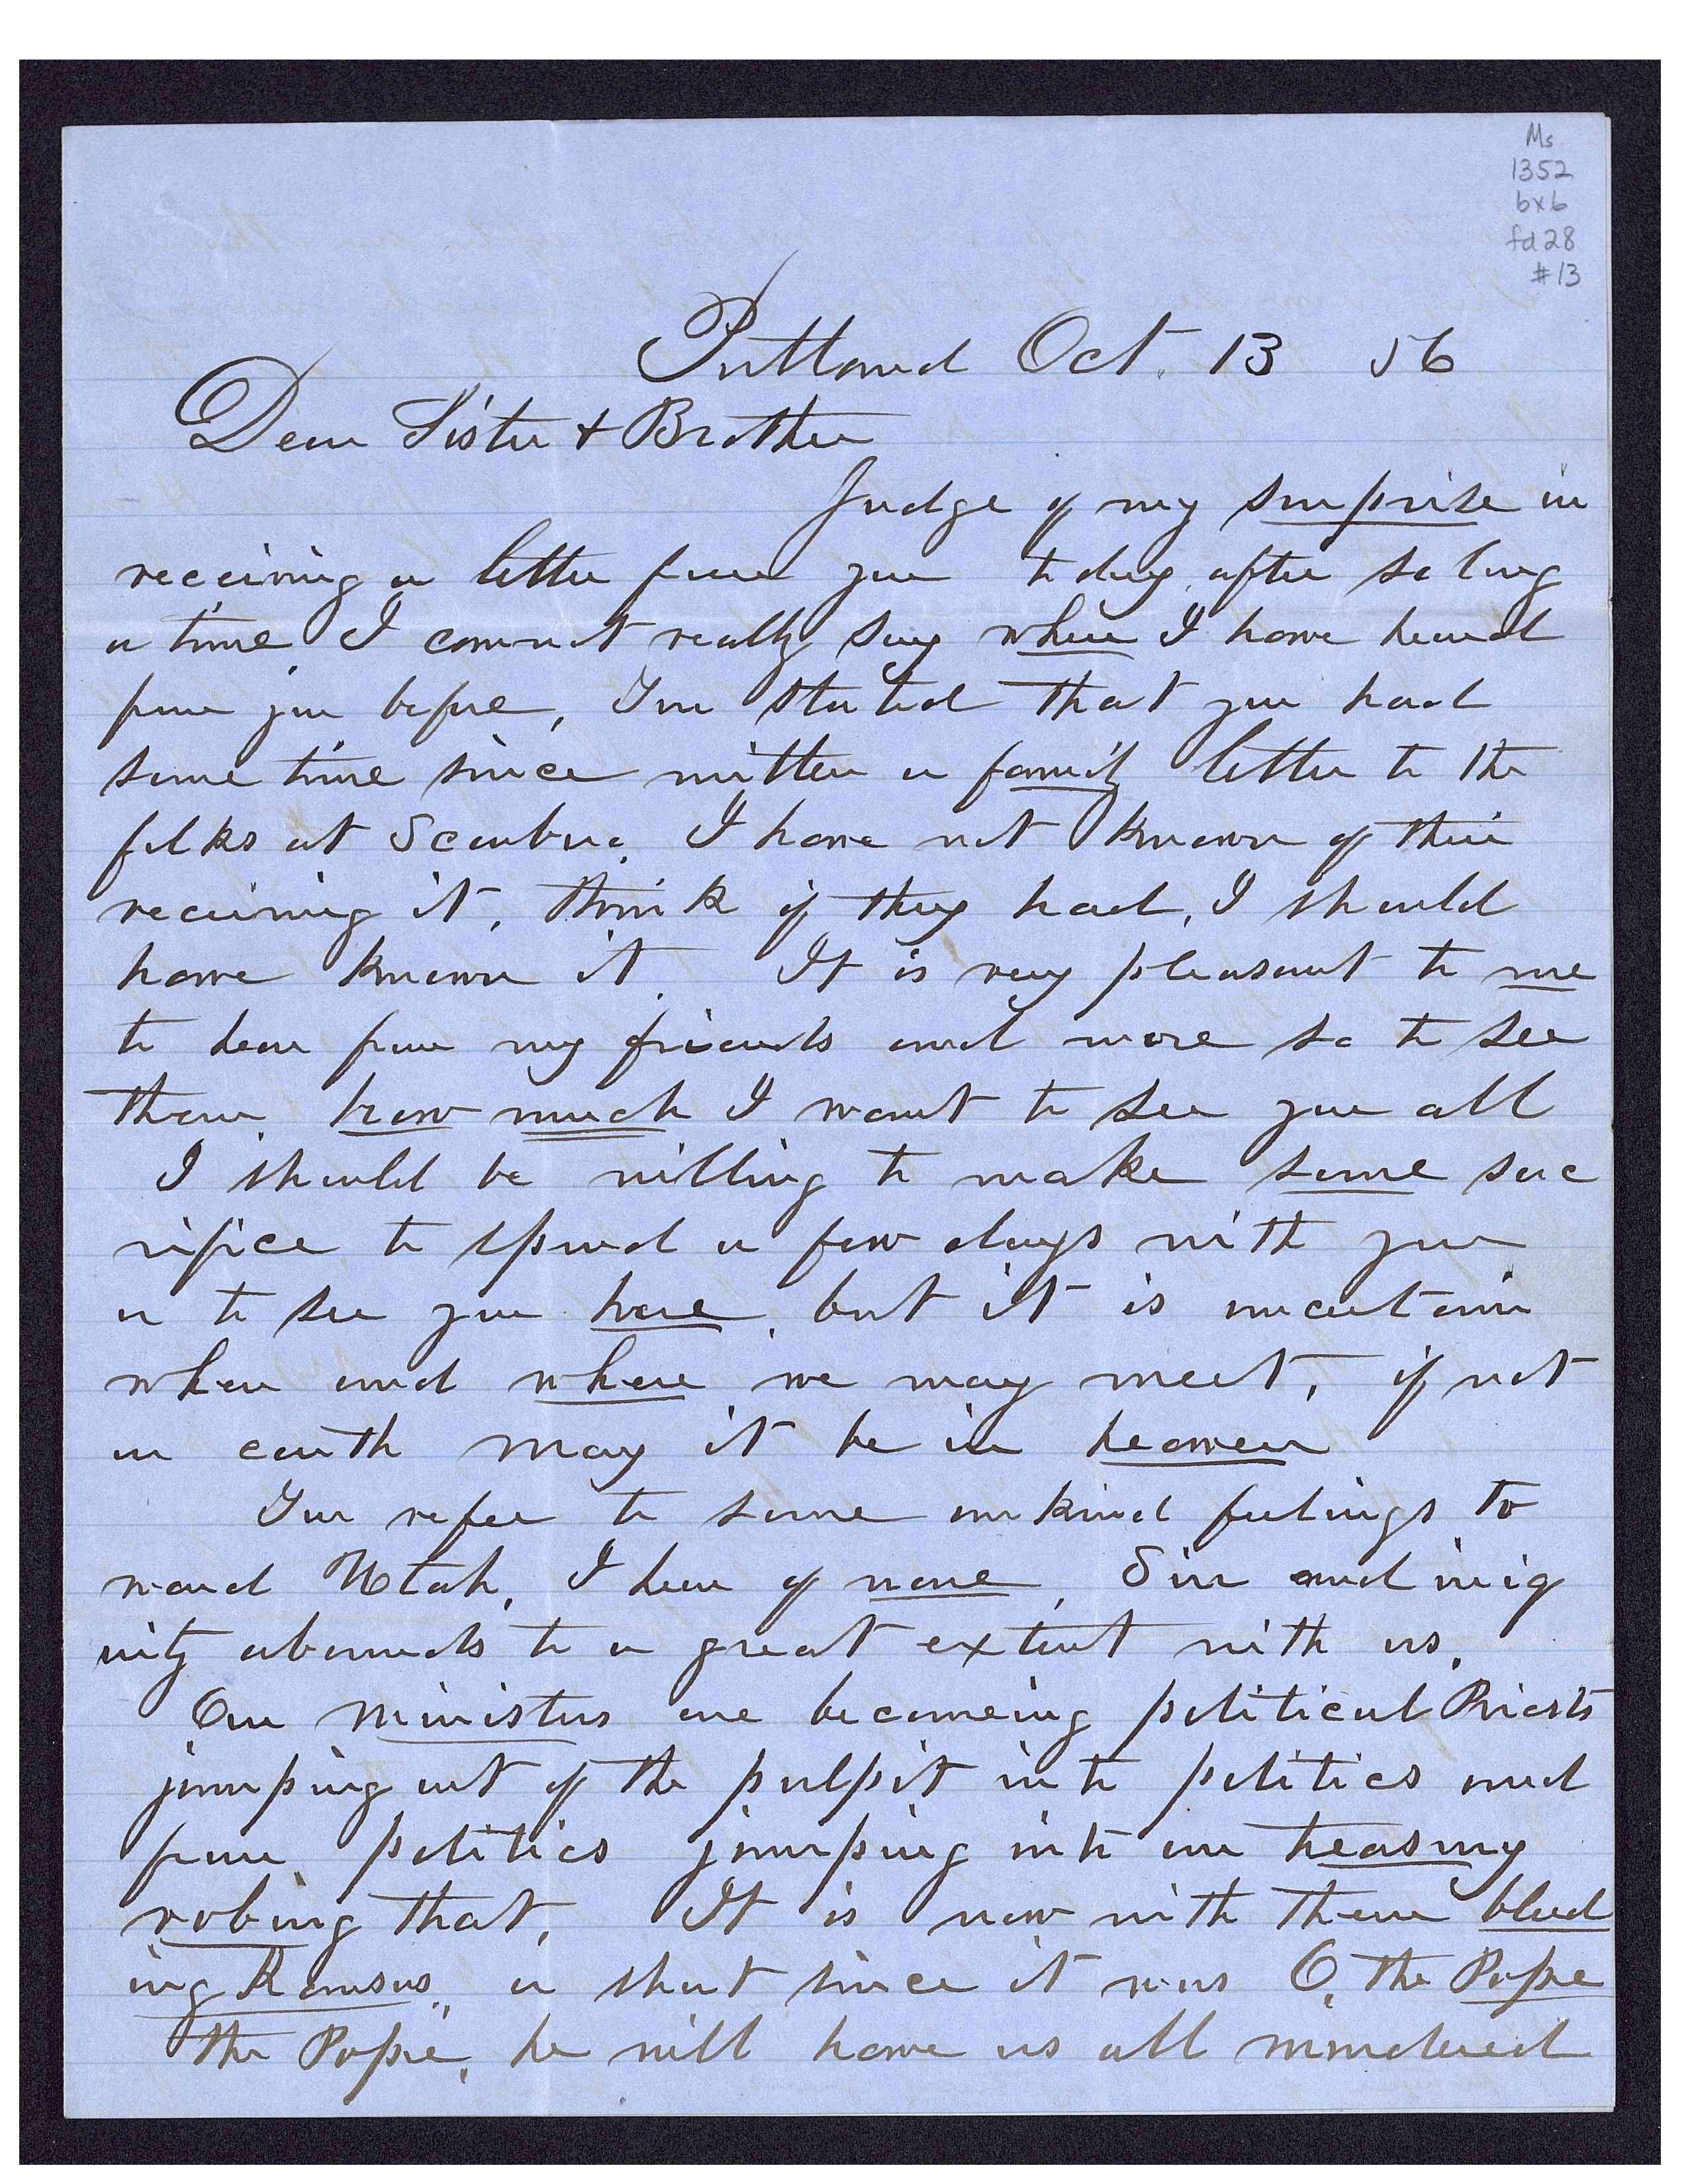 Ms
1352
bx6
fd28
#13
Portland Oct. 13 56
Dear Sister & Brother
Judge of my surprise in
receiving a letter from you to day, after so long
a time. I cannot really say when I have heard
from you before, You stated that you had
some time since written a family letter to the
folks at Scarboro, I have not known of their
receiving it, think if they had, I should
have known it. It is very pleasant to me
to hear from my friends and more so to see
them, how much I want to see you all
I should be willing to make some sac
rifice to spend a few days with you
or to see you here, but it is uncertain
when and where we may meet, if not
on earth may it be in heaven
You refer to some unkind feelings to
ward Utah, I hear of none, Sin and iniq
uity abounds to a great extent with us,
Our ministers are becomeing political Priests
jumping out of the pulpit into politics and
from politics jumping into our treasury
robing that, It is now with them bleed
ing Kansas, a short since it was O, the Pope
the Pope, he will have us all murdered